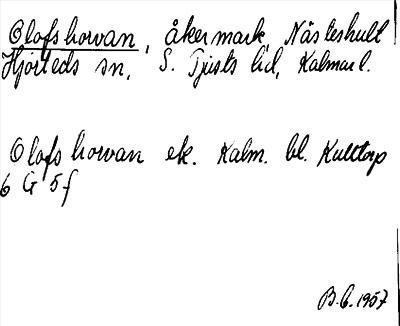 Olofshorvan, åkermark, Nästeshult
Hjorteds sn, S. Tjusts hd, Kalmar l.
Olofshorvan ek. Kalm. bl. Kulltorp
6 G 5 f
B.G. 1957